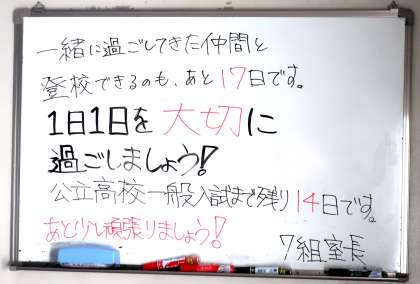 一緒に過ごしてきた仲間と
登校できるのも、あと17日です。
1日1日を大切に
過ごしましょう!
公立高校一般入試まで残り14日です。
あと少し頑張りましょう!
7組室長